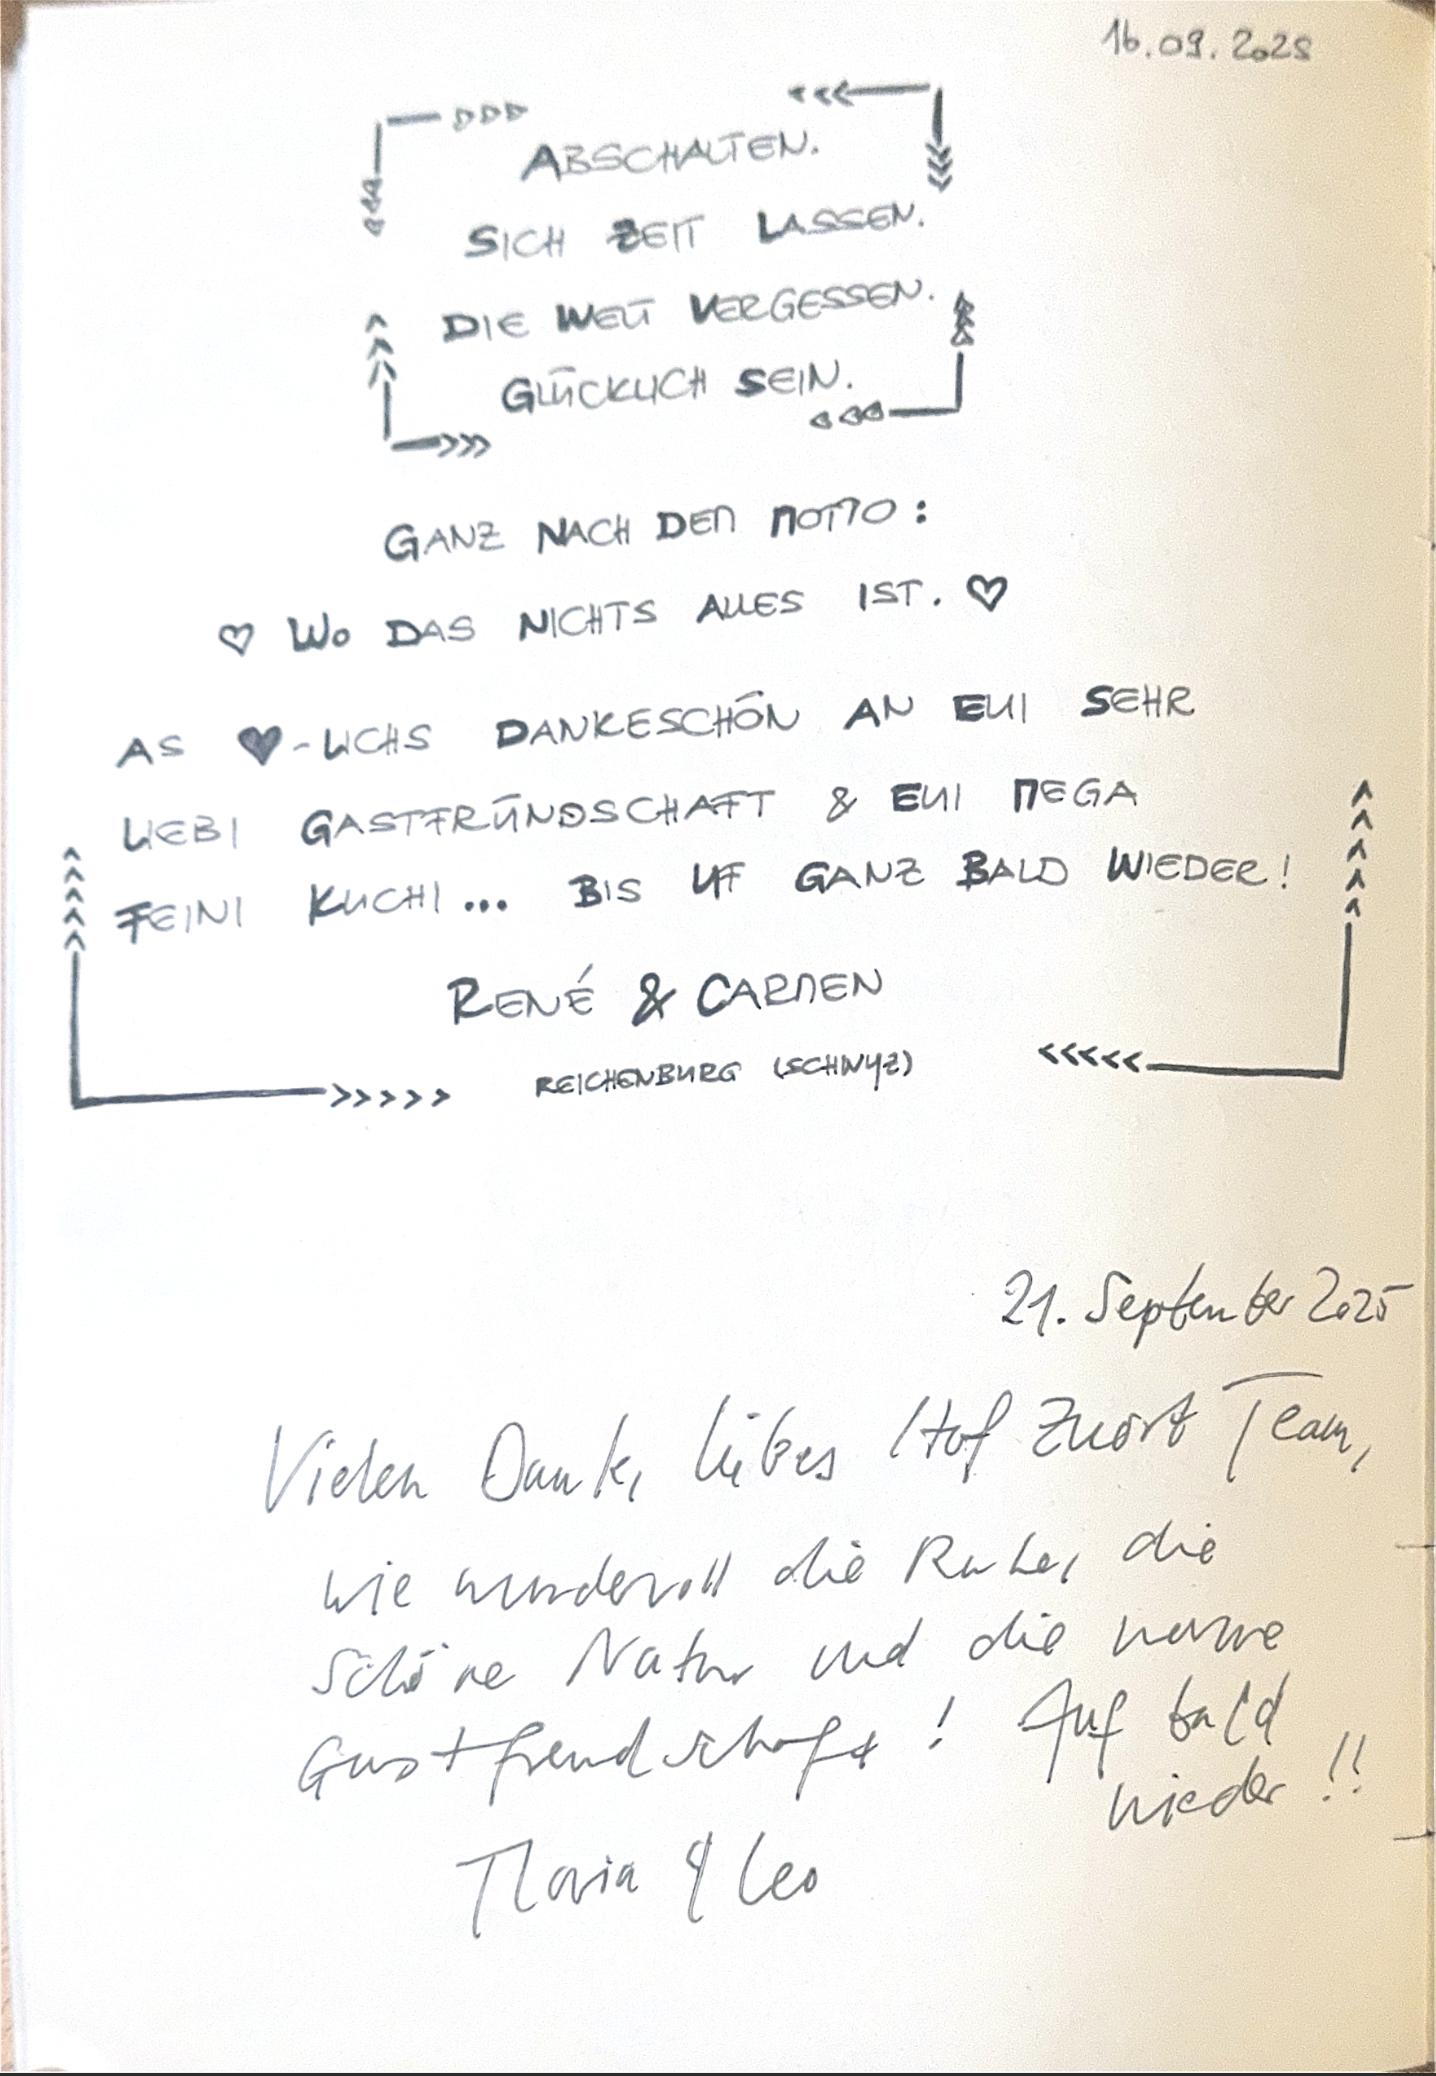 16.09.2025
ABSCHALTEN.
SICH ZEIT LASSEN.
DIE WELT VERGESSEN.
GLÜCKLICH SEIN.
GANZ NACH DEM MOTTO:
♡ WO DAS NICHTS ALLES IST. ♡
AS ♥-LICHS DANKESCHÖN AN EUI SEHR
LIEBI GASTFRÜNDSCHAFT & EUI MEGA
FEINI KUCHI... BIS UF GANZ BALD WIEDER!
RENÉ & CARMEN
REICHENBURG (SCHWYZ)
21. September 2025
Vielen Dank, liebes Hof Zuort Team,
wie wundervoll die Ruhe, die
schöne Natur und die warme
Gastfreundschaft! Auf bald
wieder!!
Flavia & Leo